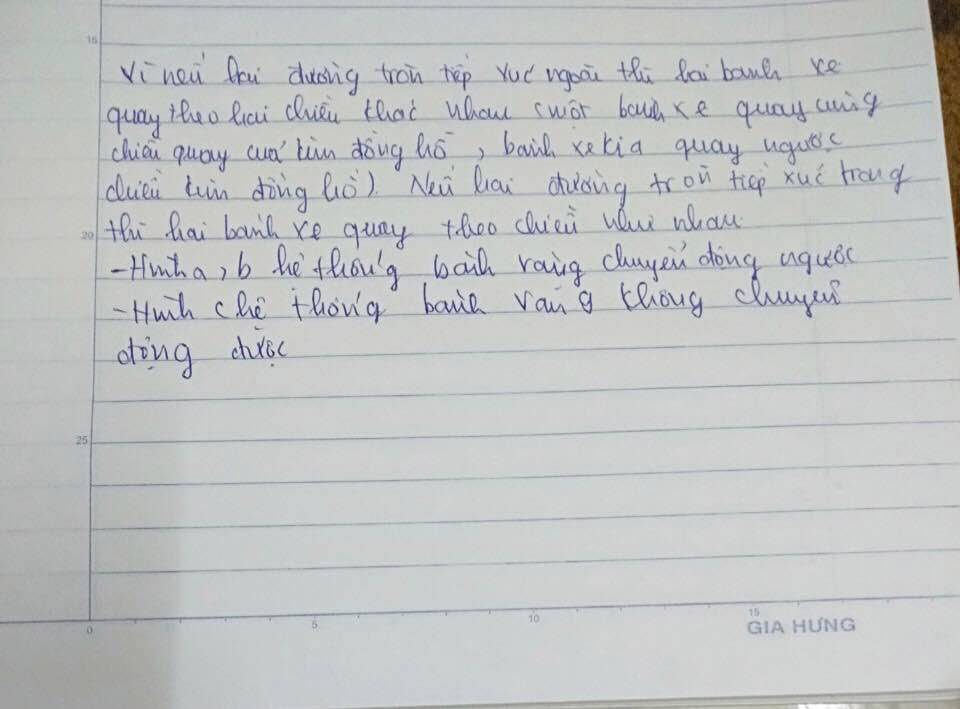 15
Vì nếu hai đường tròn tiếp xúc ngoài thì hai bánh xe
quay theo hai chiều khác nhau (một bánh xe quay cùng
chiều quay của kim đồng hồ, bánh xe kia quay ngược
chiều kim đồng hồ). Nếu hai đường tròn tiếp xúc trong
20 thì hai bánh xe quay theo chiều như nhau
- Hình a, b hệ thống bánh răng chuyển động ngược
- Hình c hệ thống bánh răng không chuyển
động được
25
0 5 10 15
GIA HƯNG